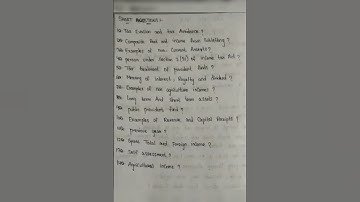 SHORT QUESTIONS:-
1Q. Tax Evasion and Tax Avoidance ?
2Q. Composite Rent and income from Subletting ?
3Q. Examples of non-Current Assets ?
4Q. person under Section 2(31) of income tax Act ?
5Q. Tax treatment of provident funds ?
6Q. Meaning of interest, Royalty and Dividend ?
7Q. Examples of non agricultural incomes ?
8Q. long term And Short term assets ?
9Q. public provident fund ?
10Q. Examples of Revenue and Capital Receipts ?
11Q. previous year ?
12Q. Gross Total and Foreign income ?
13Q. Self assessment ?
14Q. Agricultural Income ?